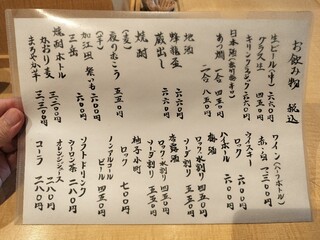 お飲み物 税込
生ビール(中) 六六〇円
グラス生 四五〇円
キリンクラシック 六六〇円
日本酒
あつ燗 二合 八五〇円
地酒
蜂龍盃 六六〇円
蔵出し 六六〇円
焼酎
(麦)
夜のむこう 五五〇円
(芋)
加江田 紫いも 六六〇円
三岳 六六〇円
焼酎ボトル
かおり麦 三、二〇〇円
まろやか芋 三、三〇〇円
ワイン(ハーフボトル)
赤・白 一、三〇〇円
ウイスキー
ロック 六〇〇円
ハイボール 六〇〇円
梅酒
ロック、水割り 四五〇円
ソーダ割り 五五〇円
杏露酒
ロック、水割り 四五〇円
ソーダ割り 五五〇円
柚子小町
ロック 七〇〇円
ノンアルコール
ビール 四五〇円
ソフトドリンク
ウーロン茶 二八〇円
オレンジジュース 二八〇円
コーラ 二八〇円